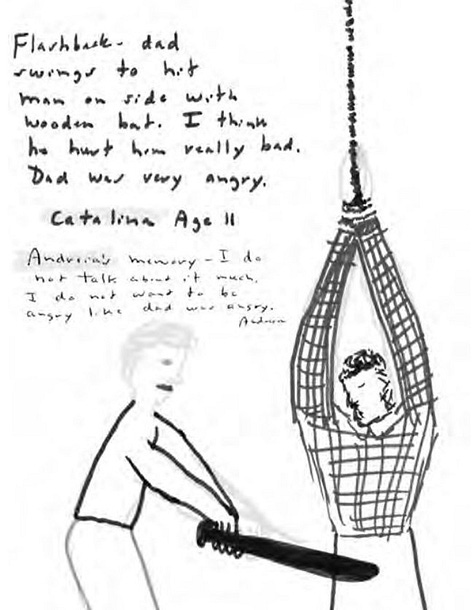 Flashback - dad
swings to hit
man on side with
wooden bat. I think
he hurt him really bad.
Dad was very angry.
Catalina Age 11
Andreia's memory - I do
not talk about it much.
I do not want to be
angry like dad was angry.
Andreia